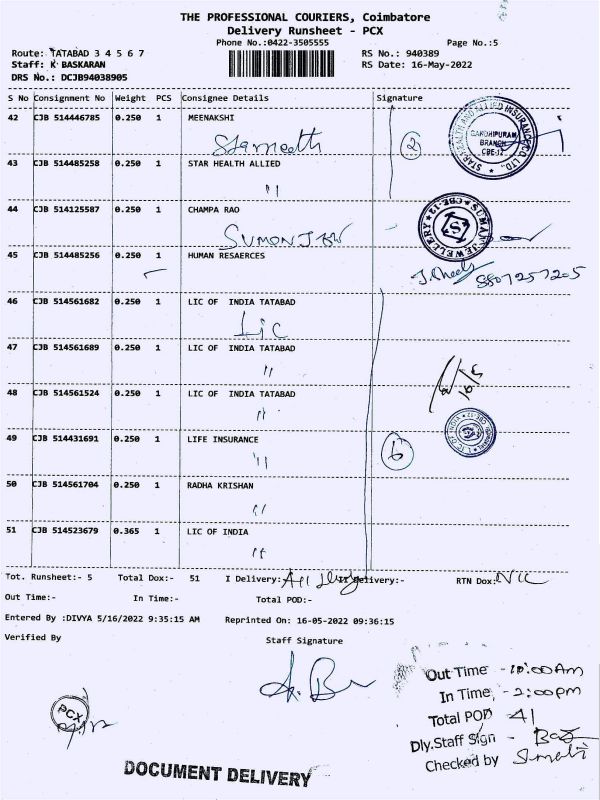 THE PROFESSIONAL COURIERS, Coimbatore
Delivery Runsheet - PCX
Phone No.:0422-3505555 Page No.:5
Route: TATABAD 3 4 5 6 7 RS No.: 940389
Staff: K BASKARAN RS Date: 16-May-2022
DRS No.: DCJB94038905
S No Consignment No Weight PCS Consignee Details Signature
42 CJB 514446785 0.250 1 MEENAKSHI
STAR HEALTH AND ALLIED INSURANCE CO. LTD.,
GANDHIPURAM BRANCH CBE-12
2
43 CJB 514485258 0.250 1 STAR HEALTH ALLIED
"
44 CJB 514125587 0.250 1 CHAMPA RAO
SUMAN JEWELLERY CBE-12
S
45 CJB 514485256 0.250 1 HUMAN RESAERCES
46 CJB 514561682 0.250 1 LIC OF INDIA TATABAD
Lic
47 CJB 514561689 0.250 1 LIC OF INDIA TATABAD
"
48 CJB 514561524 0.250 1 LIC OF INDIA TATABAD
"
49 CJB 514431691 0.250 1 LIFE INSURANCE
"
6
50 CJB 514561704 0.250 1 RADHA KRISHAN
"
51 CJB 514523679 0.365 1 LIC OF INDIA
"
Tot. Runsheet:- 5 Total Dox:- 51 I Delivery: All II Delivery:- RTN Dox: NIL
Out Time:- In Time:- Total POD:-
Entered By :DIVYA 5/16/2022 9:35:15 AM Reprinted On: 16-05-2022 09:36:15
Verified By Staff Signature
Out Time - 10:00 Am
In Time - 2:00 pm
Total POD - 41
Dly.Staff Sign -
Checked by
PCX
DOCUMENT DELIVERY